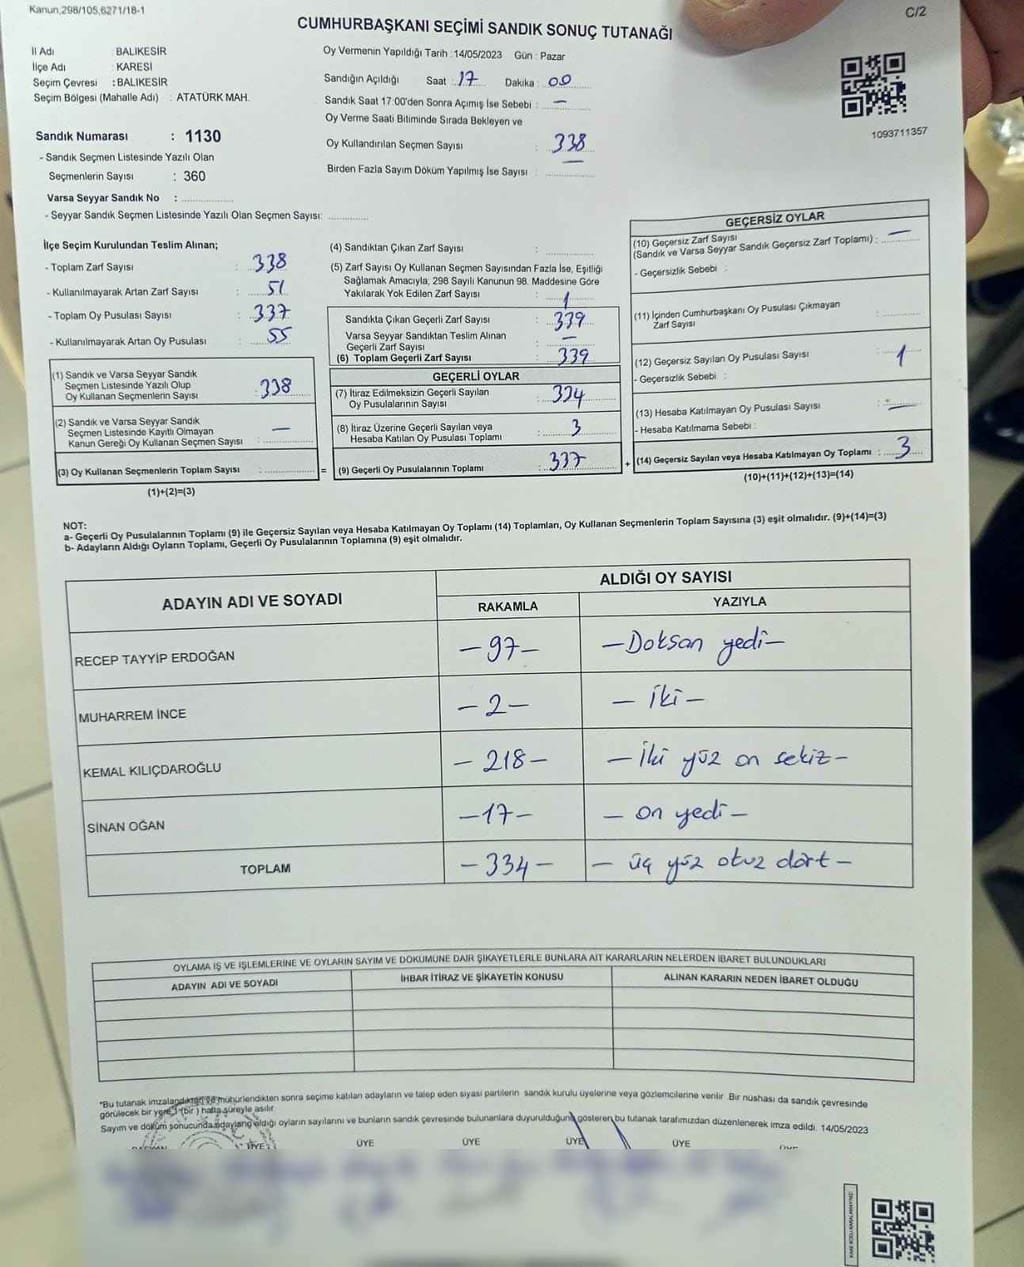 Kanun,298/105,6271/18-1
C/2
CUMHURBAŞKANI SEÇİMİ SANDIK SONUÇ TUTANAĞI
İl Adı : BALIKESİR
İlçe Adı : KARESİ
Seçim Çevresi : BALIKESİR
Seçim Bölgesi (Mahalle Adı) : ATATÜRK MAH.
Sandık Numarası : 1130
- Sandık Seçmen Listesinde Yazılı Olan
Seçmenlerin Sayısı : 360
Varsa Seyyar Sandık No :
- Seyyar Sandık Seçmen Listesinde Yazılı Olan Seçmen Sayısı:
Oy Vermenin Yapıldığı Tarih : 14/05/2023 Gün : Pazar
Sandığın Açıldığı Saat : 17 Dakika : 00
Sandık Saat 17:00'den Sonra Açımış İse Sebebi : —
Oy Verme Saati Bitiminde Sırada Bekleyen ve
Oy Kullandırılan Seçmen Sayısı : 338
Birden Fazla Sayım Döküm Yapılmış İse Sayısı : —
1093711357
İlçe Seçim Kurulundan Teslim Alınan;
- Toplam Zarf Sayısı : 338
- Kullanılmayarak Artan Zarf Sayısı : 51
- Toplam Oy Pusulası Sayısı : 337
- Kullanılmayarak Artan Oy Pusulası : 55
(1) Sandık ve Varsa Seyyar Sandık
Seçmen Listesinde Yazılı Olup
Oy Kullanan Seçmenlerin Sayısı : 338
(2) Sandık ve Varsa Seyyar Sandık
Seçmen Listesinde Kayıtlı Olmayan
Kanun Gereği Oy Kullanan Seçmen Sayısı : —
(3) Oy Kullanan Seçmenlerin Toplam Sayısı :
(1)+(2)=(3)
(4) Sandıktan Çıkan Zarf Sayısı :
(5) Zarf Sayısı Oy Kullanan Seçmen Sayısından Fazla İse, Eşitliği
Sağlamak Amacıyla, 298 Sayılı Kanunun 98. Maddesine Göre
Yakılarak Yok Edilen Zarf Sayısı : 1
Sandıkta Çıkan Geçerli Zarf Sayısı : 339
Varsa Seyyar Sandıktan Teslim Alınan
Geçerli Zarf Sayısı : —
(6) Toplam Geçerli Zarf Sayısı : 339
GEÇERLİ OYLAR
(7) İtiraz Edilmeksizin Geçerli Sayılan
Oy Pusulalarının Sayısı : 334
(8) İtiraz Üzerine Geçerli Sayılan veya
Hesaba Katılan Oy Pusulası Toplamı : 3
= (9) Geçerli Oy Pusulalarının Toplamı : 337
GEÇERSİZ OYLAR
(10) Geçersiz Zarf Sayısı
(Sandık ve Varsa Seyyar Sandık Geçersiz Zarf Toplamı) : —
- Geçersizlik Sebebi :
(11) İçinden Cumhurbaşkanı Oy Pusulası Çıkmayan
Zarf Sayısı :
(12) Geçersiz Sayılan Oy Pusulası Sayısı : 1
- Geçersizlik Sebebi :
(13) Hesaba Katılmayan Oy Pusulası Sayısı : —
- Hesaba Katılmama Sebebi :
+ (14) Geçersiz Sayılan veya Hesaba Katılmayan Oy Toplamı : 3
(10)+(11)+(12)+(13)=(14)
NOT:
a- Geçerli Oy Pusulalarının Toplamı (9) ile Geçersiz Sayılan veya Hesaba Katılmayan Oy Toplamı (14) Toplamları, Oy Kullanan Seçmenlerin Toplam Sayısına (3) eşit olmalıdır. (9)+(14)=(3)
b- Adayların Aldığı Oyların Toplamı, Geçerli Oy Pusulalarının Toplamına (9) eşit olmalıdır.
ADAYIN ADI VE SOYADI
ALDIĞI OY SAYISI
RAKAMLA YAZIYLA
RECEP TAYYİP ERDOĞAN –97– –Doksan yedi–
MUHARREM İNCE –2– –İki–
KEMAL KILIÇDAROĞLU –218– –İki yüz on sekiz–
SİNAN OĞAN –17– –on yedi–
TOPLAM –334– –üç yüz otuz dört–
OYLAMA İŞ VE İŞLEMLERİNE VE OYLARIN SAYIM VE DÖKÜMÜNE DAİR ŞİKAYETLERLE BUNLARA AİT KARARLARIN NELERDEN İBARET BULUNDUKLARI
ADAYIN ADI VE SOYADI İHBAR İTİRAZ VE ŞİKAYETİN KONUSU ALINAN KARARIN NEDEN İBARET OLDUĞU
*Bu tutanak imzalandıktan ve mühürlendikten sonra seçime katılan adayların ve talep eden siyasi partilerin sandık kurulu üyelerine veya gözlemcilerine verilir. Bir nüshası da sandık çevresinde
görülecek bir yere 1 (bir) hafta süreyle asılır.
Sayım ve döküm sonucunda adayların aldığı oyların sayılarını ve bunların sandık çevresinde bulunanlara duyurulduğunu gösteren bu tutanak tarafımızdan düzenlenerek imza edildi. 14/05/2023
ÜYE ÜYE ÜYE ÜYE ÜYE